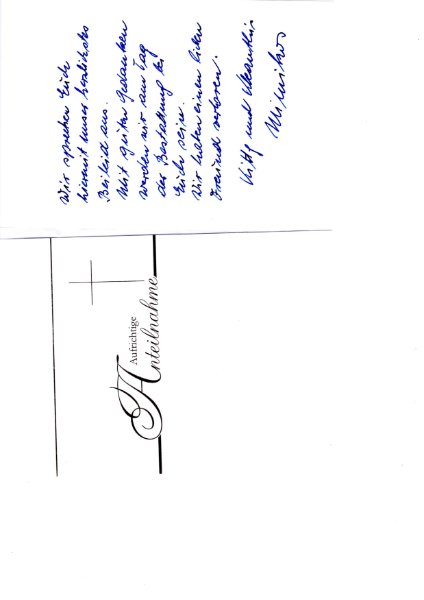 Wir sprechen Euch
hiermit unser herzlichstes
Beileid aus.
Mit guten Gedanken
werden wir am Tag
der Bestattung bei
Euch sein.
Wir haben einen lieben
Freund verloren.
und
Aufrichtige
Anteilnahme